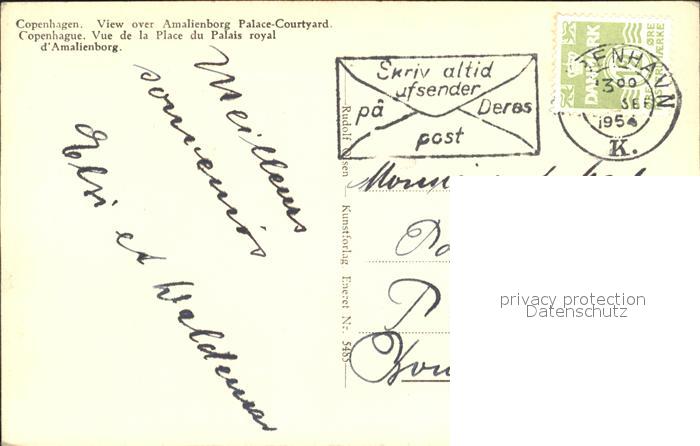 Copenhagen. View over Amalienborg Palace-Courtyard.
Copenhague. Vue de la Place du Palais royal
d'Amalienborg.
Meilleurs
souvenirs
Elsi et Waldemar
Skriv altid
afsender
på Deres
post
KØBENHAVN
13 00
SEP
1954
K.
DANMARK
ØRE
Rudolf Olsen — Kunstforlag Eneret Nr. 5485
privacy protection
Datenschutz